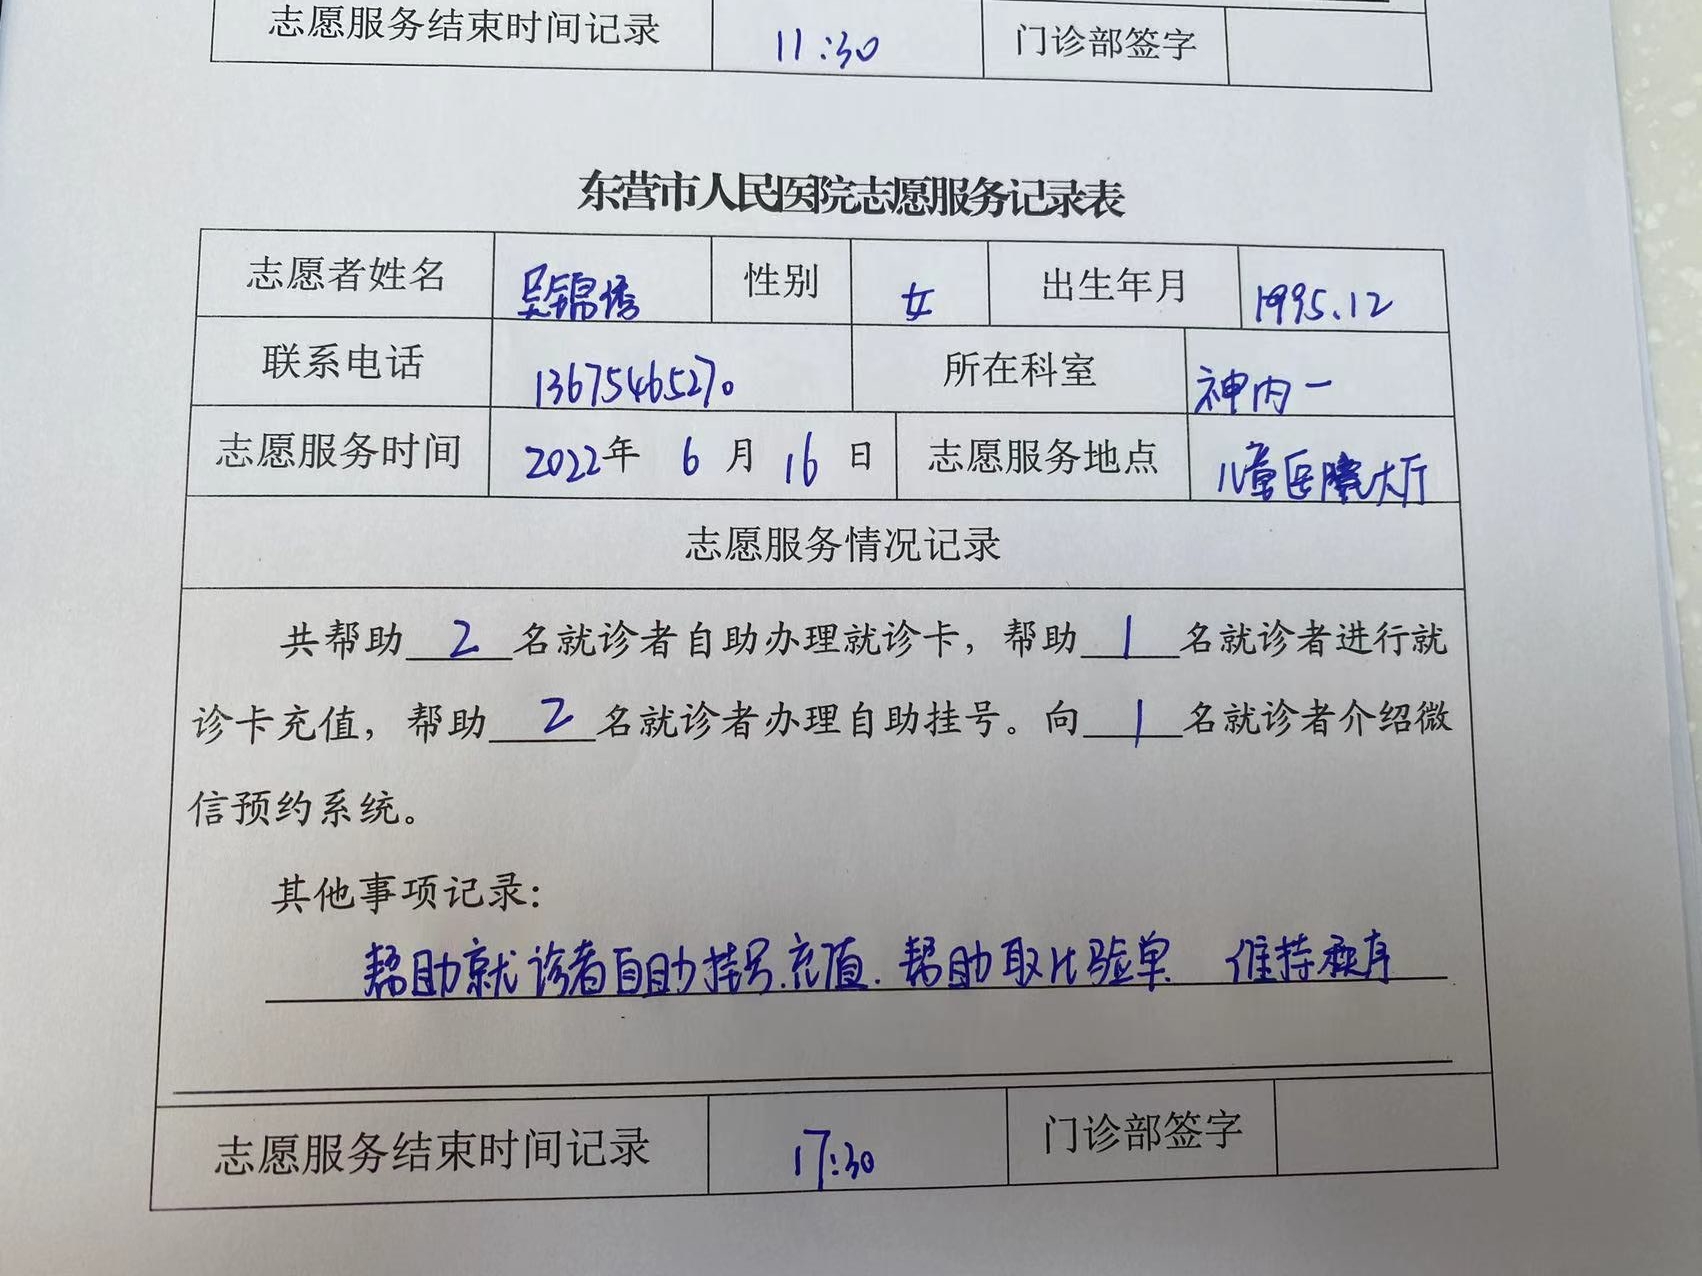 志愿服务结束时间记录 11:30 门诊部签字
东营市人民医院志愿服务记录表
志愿者姓名 吴锦绣 性别 女 出生年月 1995.12
联系电话 13675465270 所在科室 神内一
志愿服务时间 2022年 6 月 16 日 志愿服务地点 儿童医院大厅
志愿服务情况记录
共帮助 2 名就诊者自助办理就诊卡，帮助 1 名就诊者进行就
诊卡充值，帮助 2 名就诊者办理自助挂号。向 1 名就诊者介绍微
信预约系统。
其他事项记录：
帮助就诊者自助挂号.充值.帮助取化验单 维持秩序
志愿服务结束时间记录 17:30 门诊部签字